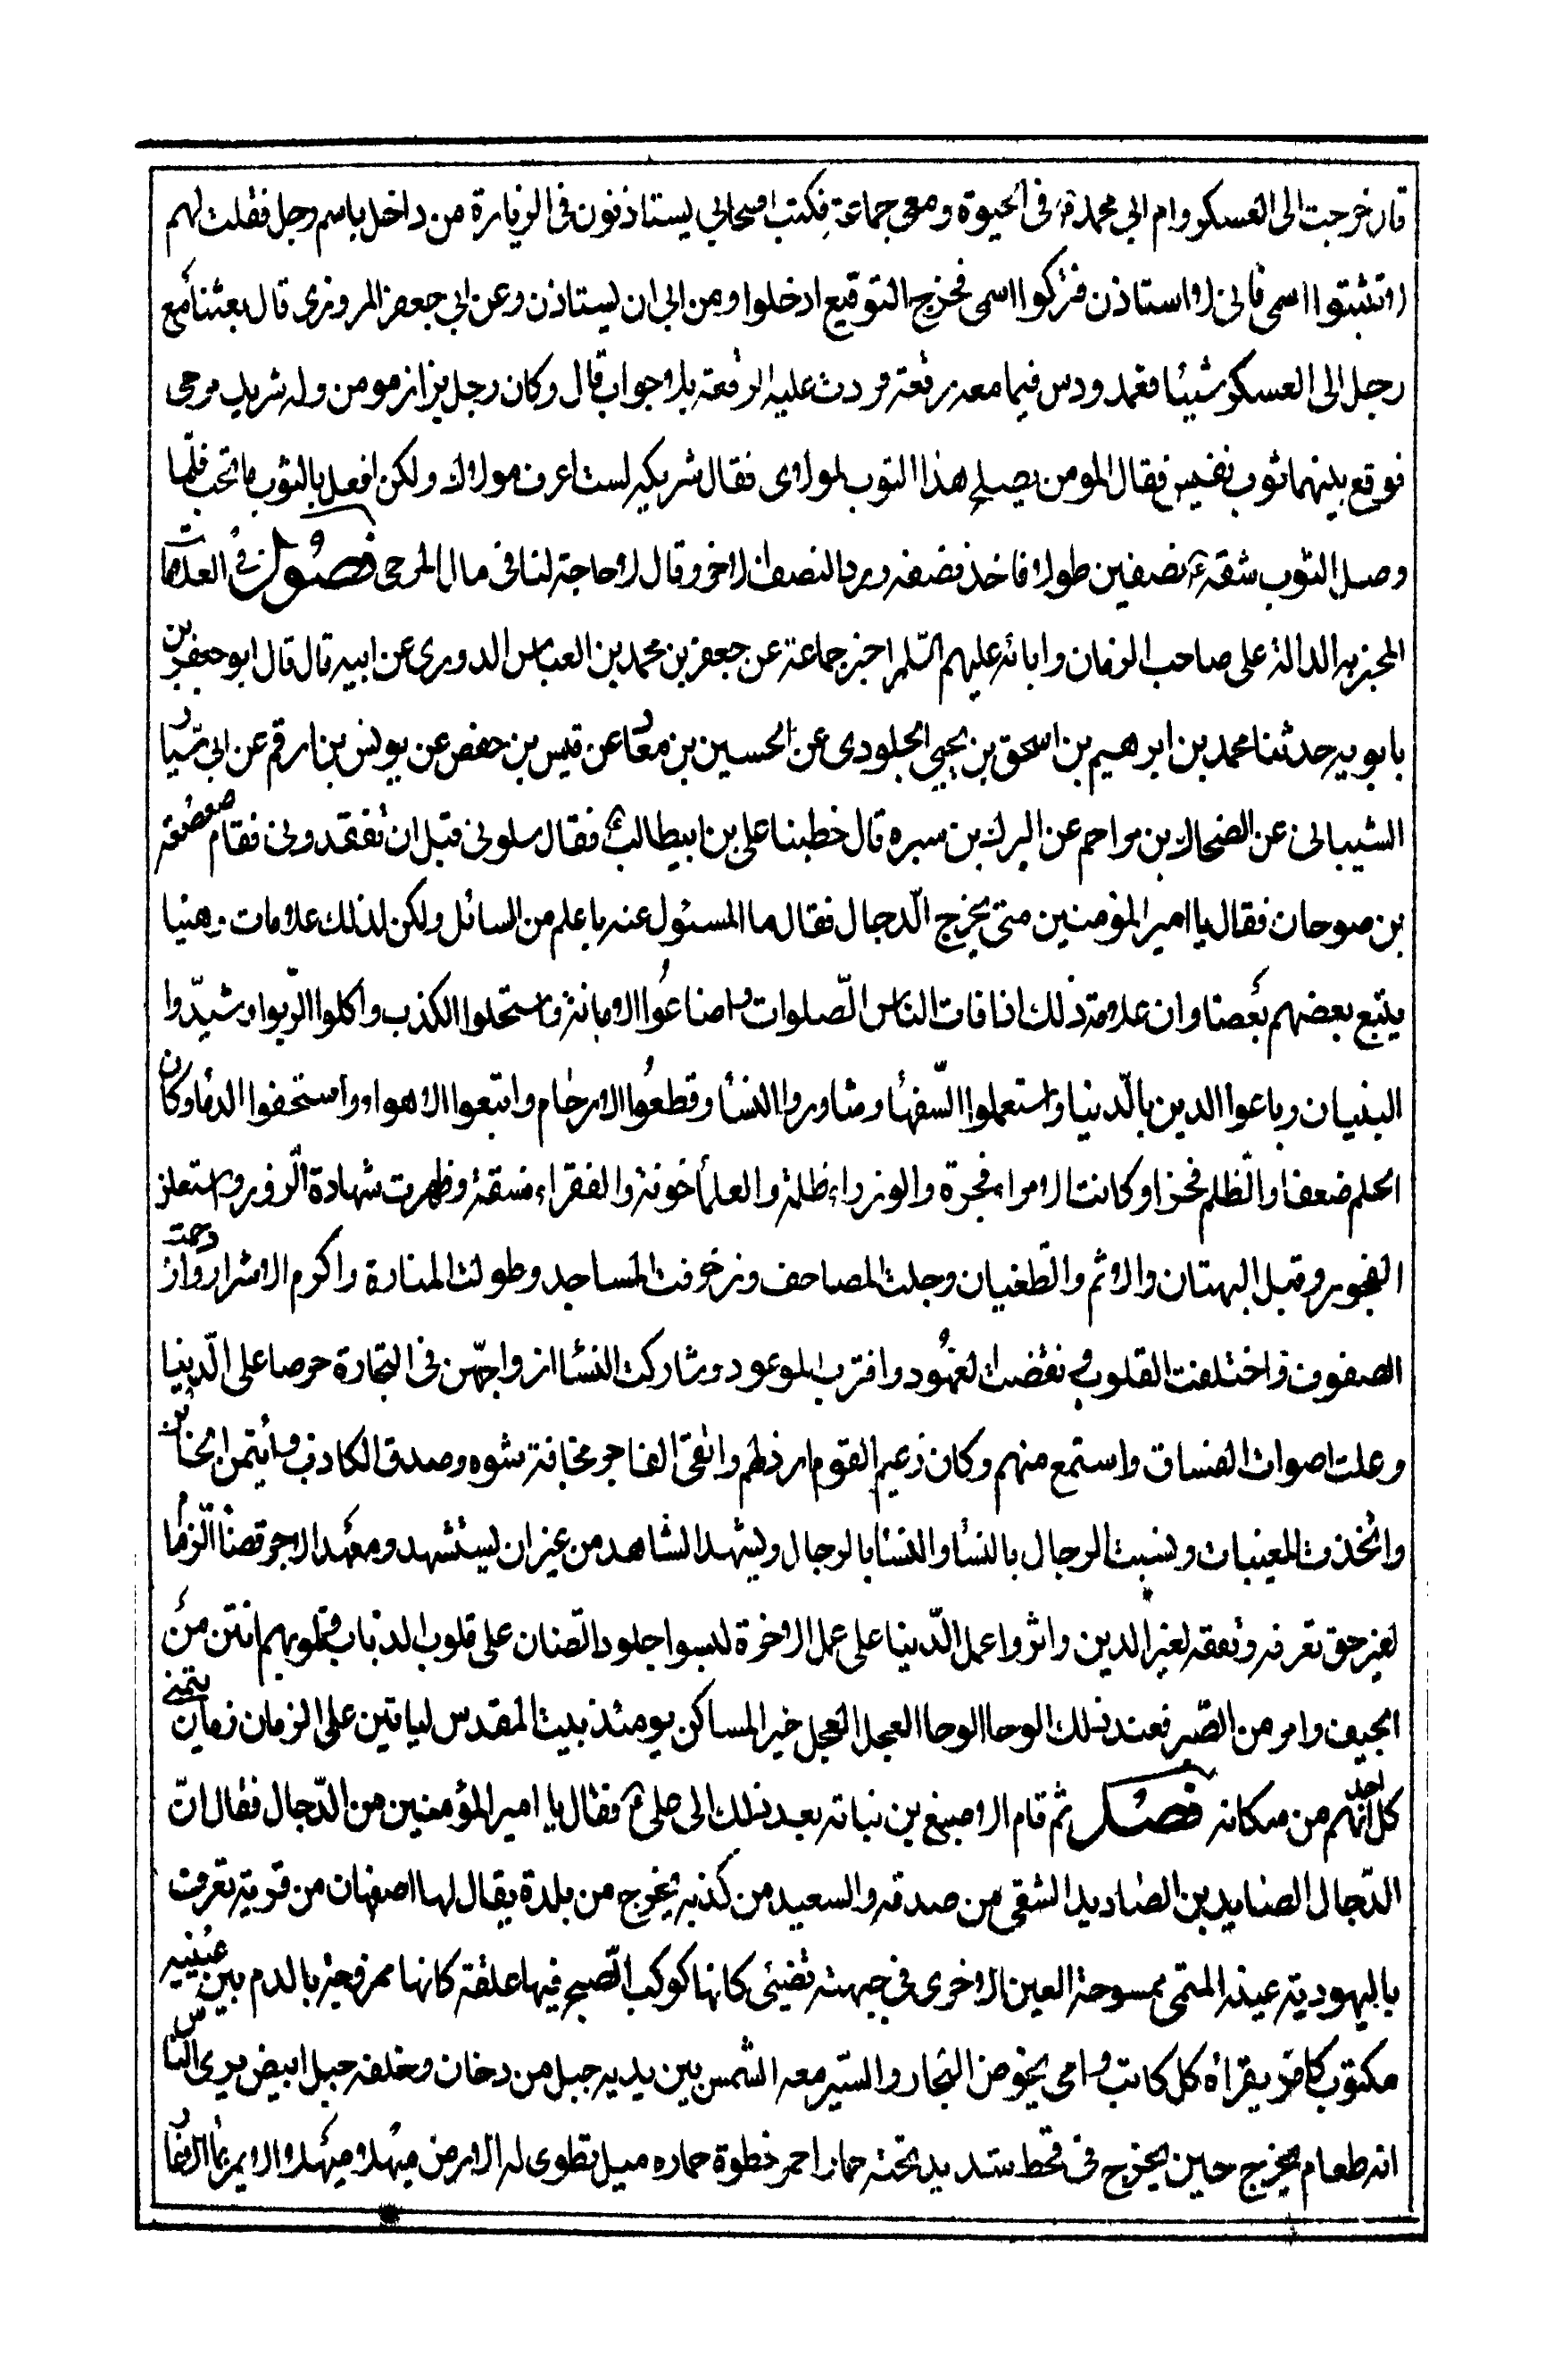 قال خرجت الى العسكر وام ابي محمد ع في الحيوة ومعى جماعة فكتب اصحابي يستاذنون في الزيارة من داخل باسم رجل فقلت لهم
لا تثبتوا اسمى فانى لا استاذن فتركوا اسمى فخرج التوقيع ادخلوا ومن ابى ان يستاذن وعن ابي جعفر المروزى قال بعثنا مع
رجل الى العسكر شيئا فعمد ودس فيما معه رقعة فردت عليه الرقعة بلا جواب قال وكان رجل بزاز مومن وله شريك مرجى
فوقع بينهما ثوب نفيس فقال المومن يصلح هذا الثوب لمولاى فقال شريكه لست اعرف مولاك ولكن افعل بالثوب ما تحب فلما
وصل الثوب شقه ع نصفين طولا فاخذ نصفه ورد النصف الاخر وقال لا حاجة لنا فى مال المرجى فصول فى العلامات
المخبر به الدالة على صاحب الزمان وابائه عليهم السلم اخبر جماعة عن جعفر بن محمد بن العباس الدورى عن ابيه قال قال ابو جعفر بن
بابويه حدثنا محمد بن ابرهيم بن اسحق بن يحيى الجلودى عن الحسين بن معاذ عن قيس بن حفص عن يونس بن ارقم عن ابى سيار
الشيبانى عن الضحاك بن مزاحم عن النزال بن سبره قال خطبنا على بن ابيطالب ع فقال سلونى قبل ان تفقدونى فقام صعصعة
بن صوحان فقال يا امير المؤمنين متى يخرج الدجال فقال ما المسئول عنه باعلم من السائل ولكن لذلك علامات وهنيا
يتبع بعضهم بعضا وان علامة ذلك اذا فات الناس الصلوات واضاعوا الامانة واستحلوا الكذب واكلوا الربوا وشيدوا
البنيان وباعوا الدين بالدنيا واستعملوا السفهاء وشاوروا النساء وقطعوا الارحام واتبعوا الاهواء واستخفوا الدماء وكان
الحلم ضعفا والظلم فخرا وكانت الامراء فجرة والوزراء ظلمة والعلماء خونة والفقراء فسقة وظهرت شهادة الزور واستعلن
الفجور وقيل البهتان والاثم والطغيان وحليت المصاحف وزخرفت المساجد وطولت المنارة واكرم الاشرار وازدحمت
الصفوف واختلفت القلوب ونقضت العهود واقترب الموعود وشاركت النساء ازواجهن فى التجارة حرصا على الدنيا
وعلت اصوات الفساق واستمع منهم وكان زعيم القوم ارذلهم واتقى الفاجر مخافة شره وصدق الكاذب وائتمن الخائن
واتخذت المغنيات ونسبت الرجال بالنساء والنساء بالرجال ويشهد الشاهد من غير ان يستشهد ومعهد الاجر قضاء الزما
لغير حق تعرفه وتفقه لغير الدين واثروا عمل الدنيا على عمل الاخرة لبسوا جلود الضان على قلوب الذئاب قلوبهم انتن من
الجيف وامر من الصبر فعند ذلك الوحا الوحا العجل العجل خير المساكن يومئذ بيت المقدس لياتين على الزمان زمان يتمنى
كل احدهم انهم من سكانه فصل ثم قام الاصبغ بن نباته بعد ذلك الى على ع فقال يا امير المؤمنين من الدجال فقال ان
الدجال الصايد بن الصايد الشقى من صدقه والسعيد من كذبه يخرج من بلدة يقال لها اصفهان من قرية تعرف
باليهودية عينه اليمنى ممسوحة العين الاخرى فى جبهته تضيئى كانها كوكب الصبح فيها علقة كانها ممزوجة بالدم بين عينيه
مكتوب كافر يقراه كل كاتب وامى يخوض البحار والسير معه الشمس بين يديه جبل من دخان وخلفه جبل ابيض يرى الناس
انه طعام يخرج حين يخرج فى قحط شديد تحته حمار احمر خطوة حماره ميل تطوى له الارض منهلا منهلا ولا يمر بماء الا غار